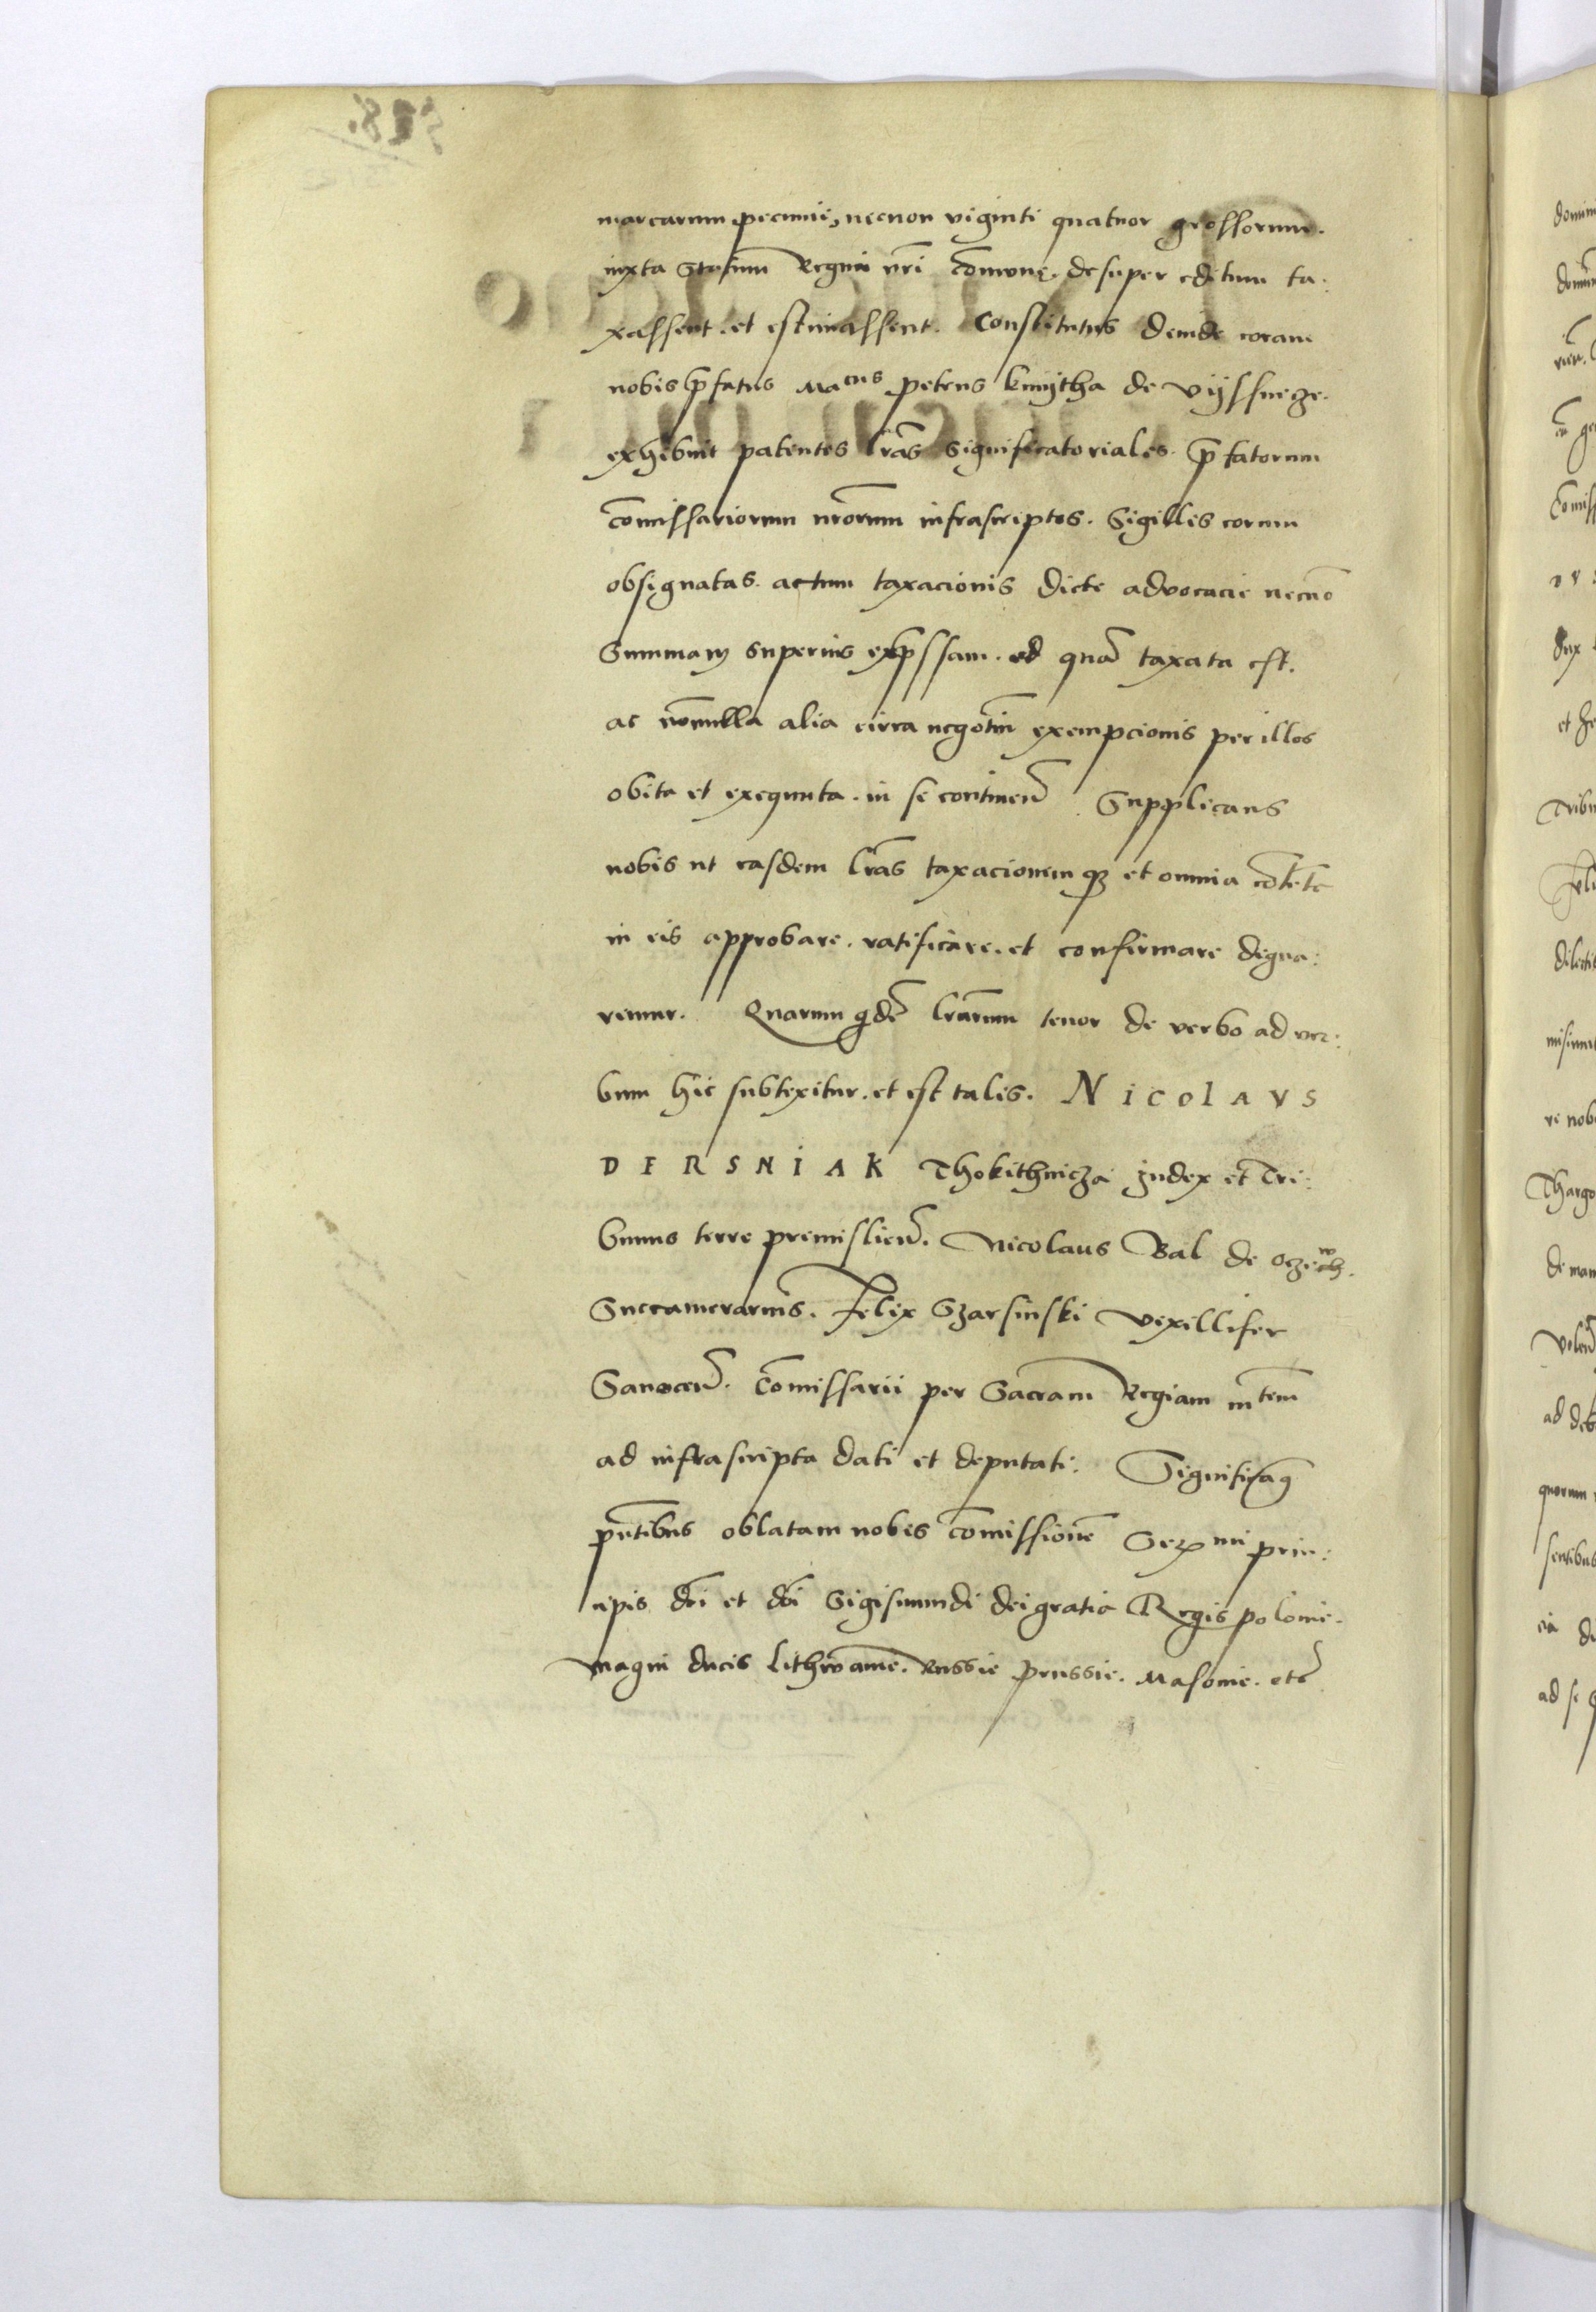 marcarum pecunie, necnon viginti quatuor grossorum.
iuxta Statum Regni nr̃i cõmune. desuper editum ta:
xassent. et estimassent. Constitutus deinde coram
nobis p̃fatus Macus petrus kmijtha de Vijssnege.
exhibuit patentes lr̃as significatoriales. p̃fatorum
cõmissariorum nr̃orum infrascriptos. Sigillis eorum
obsignatas. actum taxacionis dicte advocacie necnõ
Summam superius exp̃ssam. ad quã taxata est.
ac nõnulla alia circa negotiũ exempcionis per illos
obita et exequuta. in se continen̄ Supplicans
nobis ut easdem lr̃as taxacionemqꝫ et omnia cõtẽta
in eis approbare. ratificare. et confirmare digna:
remur. Quarum qͥdẽ lr̃arum tenor de verbo ad ver:
bum hic subtexitur. et est talis. NicolAVS
DERSNIAK Thokithnicza Judex et Tri:
bunus terre premislien̄. Nicolaus Bal de oczewh.
Succamerarius. Felix Szarsinski vexillifer
Sanocen̄. Cõmissarii per Sacram Regiam m̃tem
ad infrascripta dati et deputati. Significamꝰ
pñtibus oblatam nobis cõmissionẽ Serͫmi prin:
cipis dñi et dñi Sigismundi dei gratia Regis polonie.
magni ducis Lithwanie. Russie prussie. Masovie. etc̄